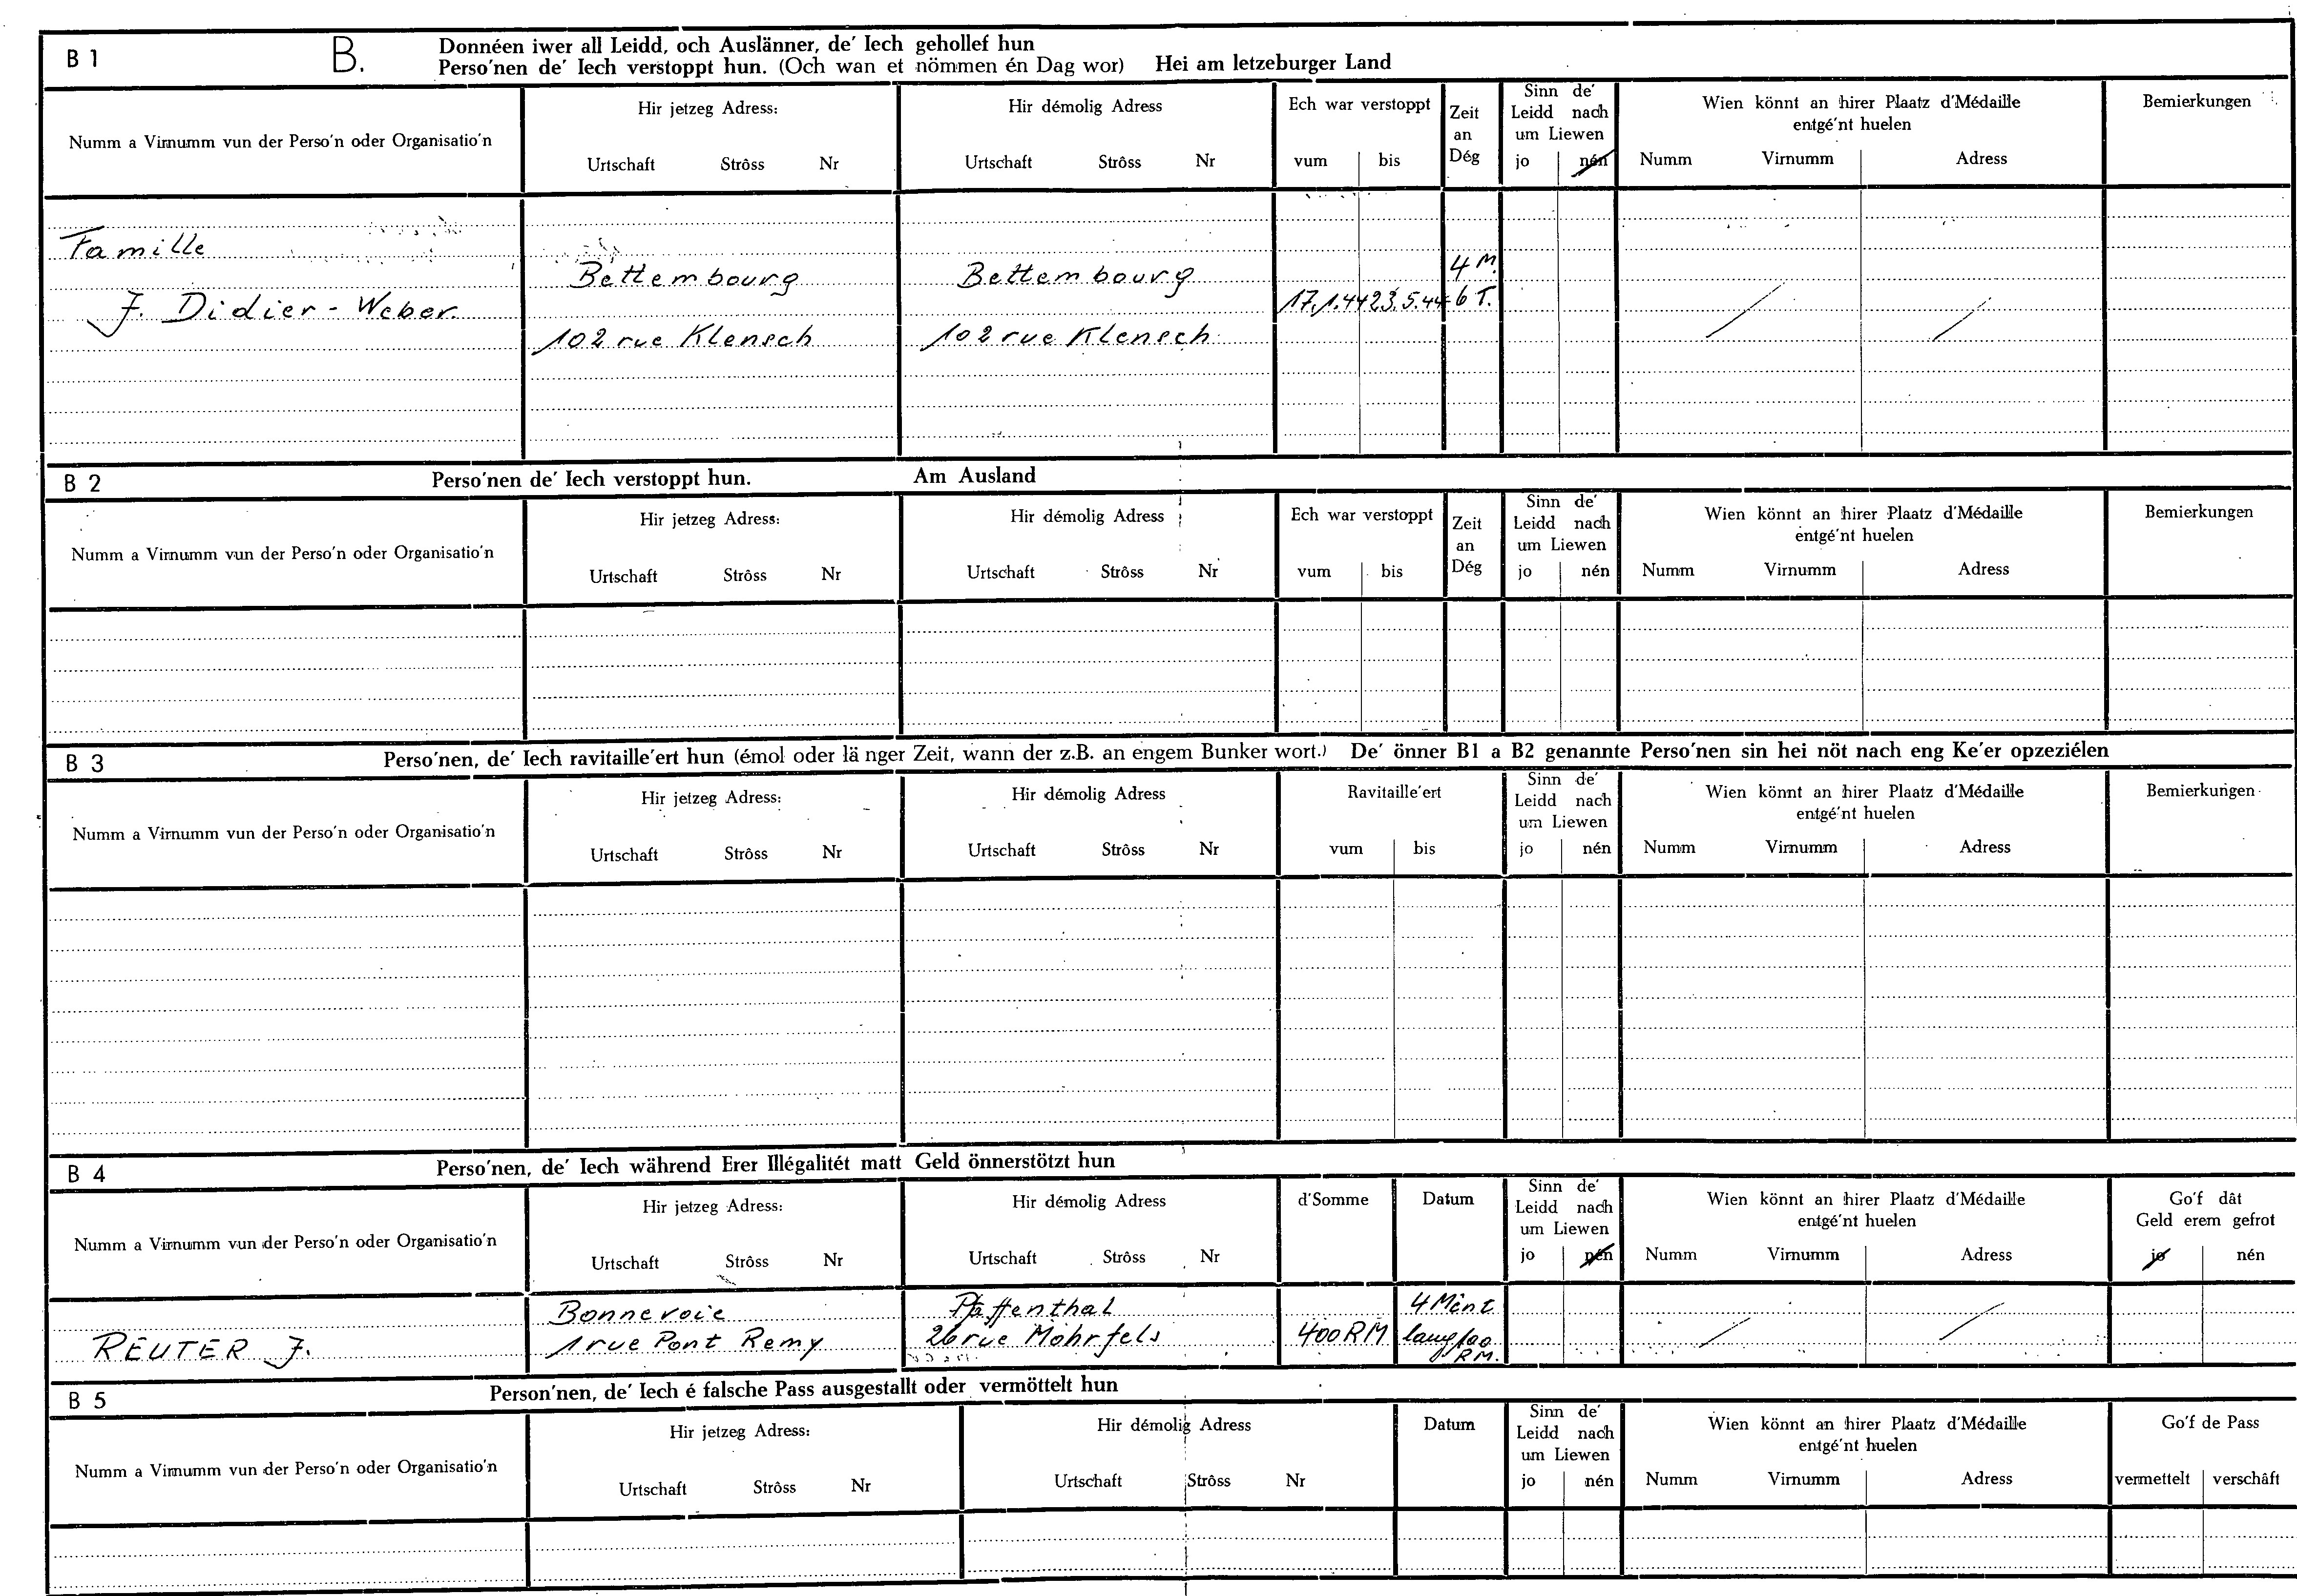 B 1
B.
Donnéen iwer all Leidd, och Auslänner, de' Iech gehollef hun
Perso'nen de' Iech verstoppt hun. (Och wan et nömmen én Dag wor) Hei am letzeburger Land
Numm a Virnumm vun der Perso'n oder Organisatio'n
Hir jetzeg Adress:
Urtschaft Strôss Nr
Hir démolig Adress
Urtschaft Strôss Nr
Ech war verstoppt
vum bis
Zeit
an
Dég
Sinn de'
Leidd nach
um Liewen
jo nén
Wien könnt an hirer Plaatz d'Médaille
entgé'nt huelen
Numm Virnumm Adress
Bemierkungen
Famille
J. Didier - Weber
Bettembourg
102 rue Klensch
Bettembourg
102 rue Klensch
17.1.44 23.5.44
4 M.
6 T.
B 2
Perso'nen de' Iech verstoppt hun. Am Ausland
Numm a Virnumm vun der Perso'n oder Organisatio'n
Hir jetzeg Adress:
Urtschaft Strôss Nr
Hir démolig Adress
Urtschaft Strôss Nr
Ech war verstoppt
vum bis
Zeit
an
Dég
Sinn de'
Leidd nach
um Liewen
jo nén
Wien könnt an hirer Plaatz d'Médaille
entgé'nt huelen
Numm Virnumm Adress
Bemierkungen
B 3
Perso'nen, de' Iech ravitaille'ert hun (émol oder lä nger Zeit, wann der z.B. an engem Bunker wort.) De' önner B1 a B2 genannte Perso'nen sin hei nöt nach eng Ke'er opzeziélen
Numm a Virnumm vun der Perso'n oder Organisatio'n
Hir jetzeg Adress:
Urtschaft Strôss Nr
Hir démolig Adress
Urtschaft Strôss Nr
Ravitaille'ert
vum bis
Sinn de'
Leidd nach
um Liewen
jo nén
Wien könnt an hirer Plaatz d'Médaille
entgé'nt huelen
Numm Virnumm Adress
Bemierkungen
B 4
Perso'nen, de' Iech während Erer Illégalitét matt Geld önnerstötzt hun
Numm a Virnumm vun der Perso'n oder Organisatio'n
Hir jetzeg Adress:
Urtschaft Strôss Nr
Hir démolig Adress
Urtschaft Strôss Nr
d'Somme
Datum
Sinn de'
Leidd nach
um Liewen
jo nén
Wien könnt an hirer Plaatz d'Médaille
entgé'nt huelen
Numm Virnumm Adress
Go'f dât
Geld erem gefrot
jo nén
REUTER J.
Bonnevoie
1 rue Pont Remy
Pfaffenthal
26 rue Mohrfels
400 RM
4 Mént
lang 100
RM.
B 5
Person'nen, de' Iech é falsche Pass ausgestallt oder vermöttelt hun
Numm a Virnumm vun der Perso'n oder Organisatio'n
Hir jetzeg Adress:
Urtschaft Strôss Nr
Hir démolig Adress
Urtschaft Strôss Nr
Datum
Sinn de'
Leidd nach
um Liewen
jo nén
Wien könnt an hirer Plaatz d'Médaille
entgé'nt huelen
Numm Virnumm Adress
Go'f de Pass
vermettelt verschâft